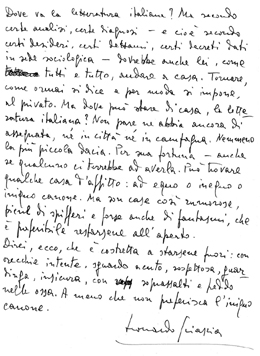 Dove va la letteratura italiana? Ma secondo
certe analisi, certe diagnosi – e cioè secondo
certi desideri, certi dettami, certi decreti dati
in sede sociologica – dovrebbe anche lei, come
tutti e tutto, andare a casa. Tornare,
come ormai si dice e per moda si impone,
al privato. Ma dove può stare di casa, la lette-
ratura italiana? Non pare ne abbia ancora di
assegnata, né in città né in campagna. Nemmeno
la più piccola dacia. Per sua fortuna – anche
se qualcuno ci terrebbe ad averla. Può trovare
qualche casa d'affitto: ad equo o meglio o
iniquo canone. Ma son case così rumorose,
piene di spifferi e forse anche di fantasmi, che
è preferibile restarsene all'aperto.
Direi, ecco, che è costretta a starsene fuori: con
orecchie intente, sguardo acuto, sospettosa, guar-
dinga, insicura, con soprassalti e freddo
nelle ossa. A meno che non preferisca l'iniquo
canone.
Leonardo Sciascia